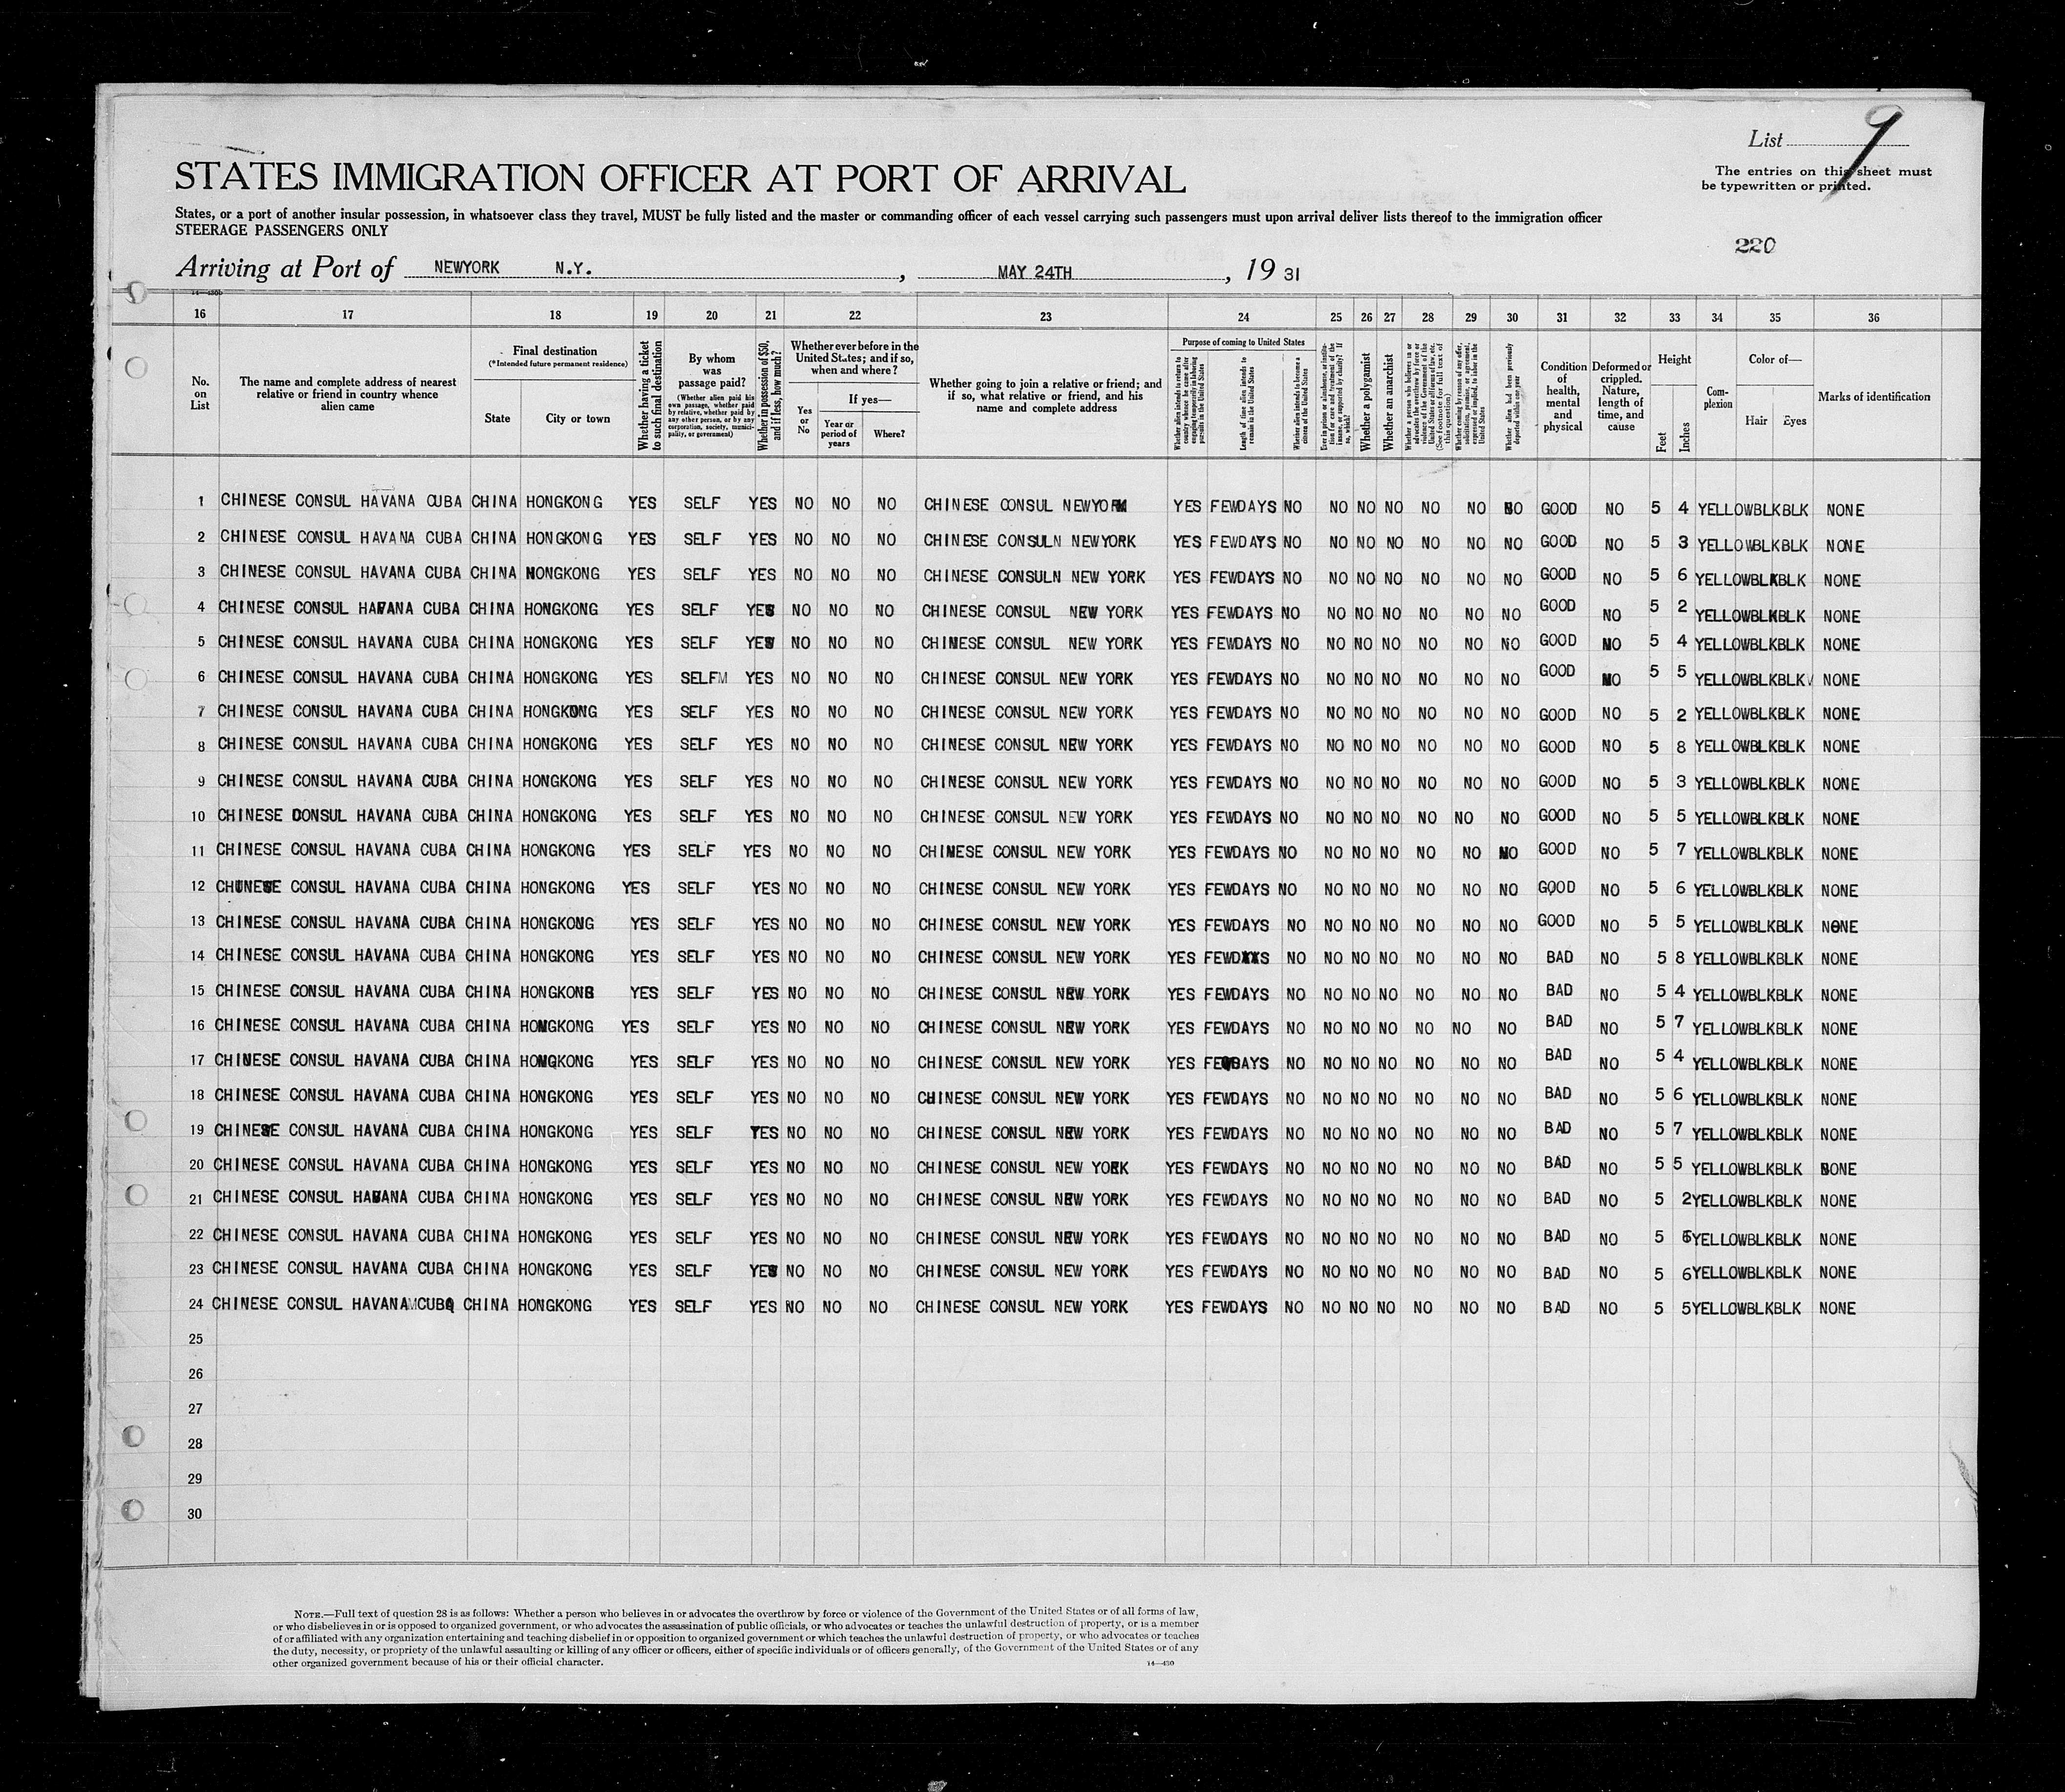 List 9
The entries on this sheet must
be typewritten or printed.
STATES IMMIGRATION OFFICER AT PORT OF ARRIVAL
States, or a port of another insular possession, in whatsoever class they travel, MUST be fully listed and the master or commanding officer of each vessel carrying such passengers must upon arrival deliver lists thereof to the immigration officer
STEERAGE PASSENGERS ONLY
220
Arriving at Port of NEWYORK N.Y. , MAY 24TH , 19 31
16 17 18 19 20 21 22 23 24 25 26 27 28 29 30 31 32 33 34 35 36
No.
on
List
The name and complete address of nearest
relative or friend in country whence
alien came
Final destination
(*Intended future permanent residence)
State
City or town
Whether having a ticket
to such final destination
By whom
was
passage paid?
(Whether alien paid his
own passage, whether paid
by relative, whether paid by
any other person, or by any
corporation, society, munici-
pality, or government)
Whether in possession of $50,
and if less, how much?
Whether ever before in the
United States; and if so,
when and where?
Yes
or
No
If yes—
Year or
period of
years
Where?
Whether going to join a relative or friend; and
if so, what relative or friend, and his
name and complete address
Purpose of coming to United States
Whether alien intends to return to
country whence he came after
engaging temporarily in laboring
pursuits in the United States
Length of time alien intends to
remain in the United States
Whether alien intends to become a
citizen of the United States
Ever in prison or almshouse, or institu-
tion for care and treatment of the
insane, or supported by charity? If
so, which?
Whether a polygamist
Whether an anarchist
Whether a person who believes in or
advocates the overthrow by force or
violence of the Government of the
United States or all forms of law, etc.
(See footnote for full text of
this question)
Whether coming by reason of any offer,
solicitation, promise, or agreement,
expressed or implied, to labor in the
United States
Whether alien had been previously
deported within one year
Condition
of
health,
mental
and
physical
Deformed or
crippled.
Nature,
length of
time, and
cause
Height
Feet
Inches
Com-
plexion
Color of—
Hair
Eyes
Marks of identification
1 CHINESE CONSUL HAVANA CUBA CHINA HONGKONG YES SELF YES NO NO NO CHINESE CONSUL NEWYORK YES FEWDAYS NO NO NO NO NO NO NO GOOD NO 5 4 YELLOWBLKBLK NONE
2 CHINESE CONSUL HAVANA CUBA CHINA HONGKONG YES SELF YES NO NO NO CHINESE CONSULN NEWYORK YES FEWDAYS NO NO NO NO NO NO NO GOOD NO 5 3 YELLOWBLKBLK NONE
3 CHINESE CONSUL HAVANA CUBA CHINA HONGKONG YES SELF YES NO NO NO CHINESE CONSULN NEW YORK YES FEWDAYS NO NO NO NO NO NO NO GOOD NO 5 6 YELLOWBLKBLK NONE
4 CHINESE CONSUL HAVANA CUBA CHINA HONGKONG YES SELF YES NO NO NO CHINESE CONSUL NEW YORK YES FEWDAYS NO NO NO NO NO NO NO GOOD NO 5 2 YELLOWBLKBLK NONE
5 CHINESE CONSUL HAVANA CUBA CHINA HONGKONG YES SELF YES NO NO NO CHINESE CONSUL NEW YORK YES FEWDAYS NO NO NO NO NO NO NO GOOD NO 5 4 YELLOWBLKBLK NONE
6 CHINESE CONSUL HAVANA CUBA CHINA HONGKONG YES SELFM YES NO NO NO CHINESE CONSUL NEW YORK YES FEWDAYS NO NO NO NO NO NO NO GOOD NO 5 5 YELLOWBLKBLK NONE
7 CHINESE CONSUL HAVANA CUBA CHINA HONGKONG YES SELF YES NO NO NO CHINESE CONSUL NEW YORK YES FEWDAYS NO NO NO NO NO NO NO GOOD NO 5 2 YELLOWBLKBLK NONE
8 CHINESE CONSUL HAVANA CUBA CHINA HONGKONG YES SELF YES NO NO NO CHINESE CONSUL NEW YORK YES FEWDAYS NO NO NO NO NO NO NO GOOD NO 5 8 YELLOWBLKBLK NONE
9 CHINESE CONSUL HAVANA CUBA CHINA HONGKONG YES SELF YES NO NO NO CHINESE CONSUL NEW YORK YES FEWDAYS NO NO NO NO NO NO NO GOOD NO 5 3 YELLOWBLKBLK NONE
10 CHINESE CONSUL HAVANA CUBA CHINA HONGKONG YES SELF YES NO NO NO CHINESE CONSUL NEW YORK YES FEWDAYS NO NO NO NO NO NO NO GOOD NO 5 5 YELLOWBLKBLK NONE
11 CHINESE CONSUL HAVANA CUBA CHINA HONGKONG YES SELF YES NO NO NO CHINESE CONSUL NEW YORK YES FEWDAYS NO NO NO NO NO NO NO GOOD NO 5 7 YELLOWBLKBLK NONE
12 CHINESE CONSUL HAVANA CUBA CHINA HONGKONG YES SELF YES NO NO NO CHINESE CONSUL NEW YORK YES FEWDAYS NO NO NO NO NO NO NO GOOD NO 5 6 YELLOWBLKBLK NONE
13 CHINESE CONSUL HAVANA CUBA CHINA HONGKONG YES SELF YES NO NO NO CHINESE CONSUL NEW YORK YES FEWDAYS NO NO NO NO NO NO NO GOOD NO 5 5 YELLOWBLKBLK NONE
14 CHINESE CONSUL HAVANA CUBA CHINA HONGKONG YES SELF YES NO NO NO CHINESE CONSUL NEW YORK YES FEWDAYS NO NO NO NO NO NO NO BAD NO 5 8 YELLOWBLKBLK NONE
15 CHINESE CONSUL HAVANA CUBA CHINA HONGKONG YES SELF YES NO NO NO CHINESE CONSUL NEW YORK YES FEWDAYS NO NO NO NO NO NO NO BAD NO 5 4 YELLOWBLKBLK NONE
16 CHINESE CONSUL HAVANA CUBA CHINA HONGKONG YES SELF YES NO NO NO CHINESE CONSUL NEW YORK YES FEWDAYS NO NO NO NO NO NO NO BAD NO 5 7 YELLOWBLKBLK NONE
17 CHINESE CONSUL HAVANA CUBA CHINA HONGKONG YES SELF YES NO NO NO CHINESE CONSUL NEW YORK YES FEWDAYS NO NO NO NO NO NO NO BAD NO 5 4 YELLOWBLKBLK NONE
18 CHINESE CONSUL HAVANA CUBA CHINA HONGKONG YES SELF YES NO NO NO CHINESE CONSUL NEW YORK YES FEWDAYS NO NO NO NO NO NO NO BAD NO 5 6 YELLOWBLKBLK NONE
19 CHINESE CONSUL HAVANA CUBA CHINA HONGKONG YES SELF YES NO NO NO CHINESE CONSUL NEW YORK YES FEWDAYS NO NO NO NO NO NO NO BAD NO 5 7 YELLOWBLKBLK NONE
20 CHINESE CONSUL HAVANA CUBA CHINA HONGKONG YES SELF YES NO NO NO CHINESE CONSUL NEW YORK YES FEWDAYS NO NO NO NO NO NO NO BAD NO 5 5 YELLOWBLKBLK NONE
21 CHINESE CONSUL HAVANA CUBA CHINA HONGKONG YES SELF YES NO NO NO CHINESE CONSUL NEW YORK YES FEWDAYS NO NO NO NO NO NO NO BAD NO 5 2YELLOWBLKBLK NONE
22 CHINESE CONSUL HAVANA CUBA CHINA HONGKONG YES SELF YES NO NO NO CHINESE CONSUL NEW YORK YES FEWDAYS NO NO NO NO NO NO NO BAD NO 5 YELLOWBLKBLK NONE
23 CHINESE CONSUL HAVANA CUBA CHINA HONGKONG YES SELF YES NO NO NO CHINESE CONSUL NEW YORK YES FEWDAYS NO NO NO NO NO NO NO BAD NO 5 6YELLOWBLKBLK NONE
24 CHINESE CONSUL HAVANAMCUBA CHINA HONGKONG YES SELF YES NO NO NO CHINESE CONSUL NEW YORK YES FEWDAYS NO NO NO NO NO NO NO BAD NO 5 5YELLOWBLKBLK NONE
25
26
27
28
29
30
NOTE.—Full text of question 28 is as follows: Whether a person who believes in or advocates the overthrow by force or violence of the Government of the United States or of all forms of law,
or who disbelieves in or is opposed to organized government, or who advocates the assassination of public officials, or who advocates or teaches the unlawful destruction of property, or is a member
of or affiliated with any organization entertaining and teaching disbelief in or opposition to organized government or which teaches the unlawful destruction of property, or who advocates or teaches
the duty, necessity, or propriety of the unlawful assaulting or killing of any officer or officers, either of specific individuals or of officers generally, of the Government of the United States or of any
other organized government because of his or their official character.
14—430